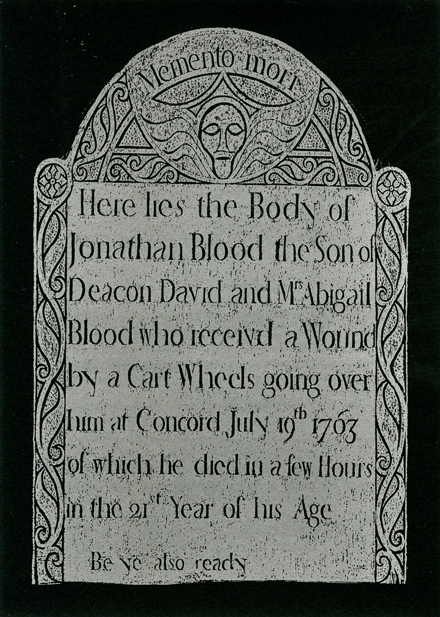 Memento mori
Here lies the Body of
Jonathan Blood the Son of
Deacon David and Mrs Abigail
Blood who receivd a Wound
by a Cart Wheels going over
him at Concord July 19th 1763
of which he died in a few Hours
in the 21st Year of his Age
Be ye also ready